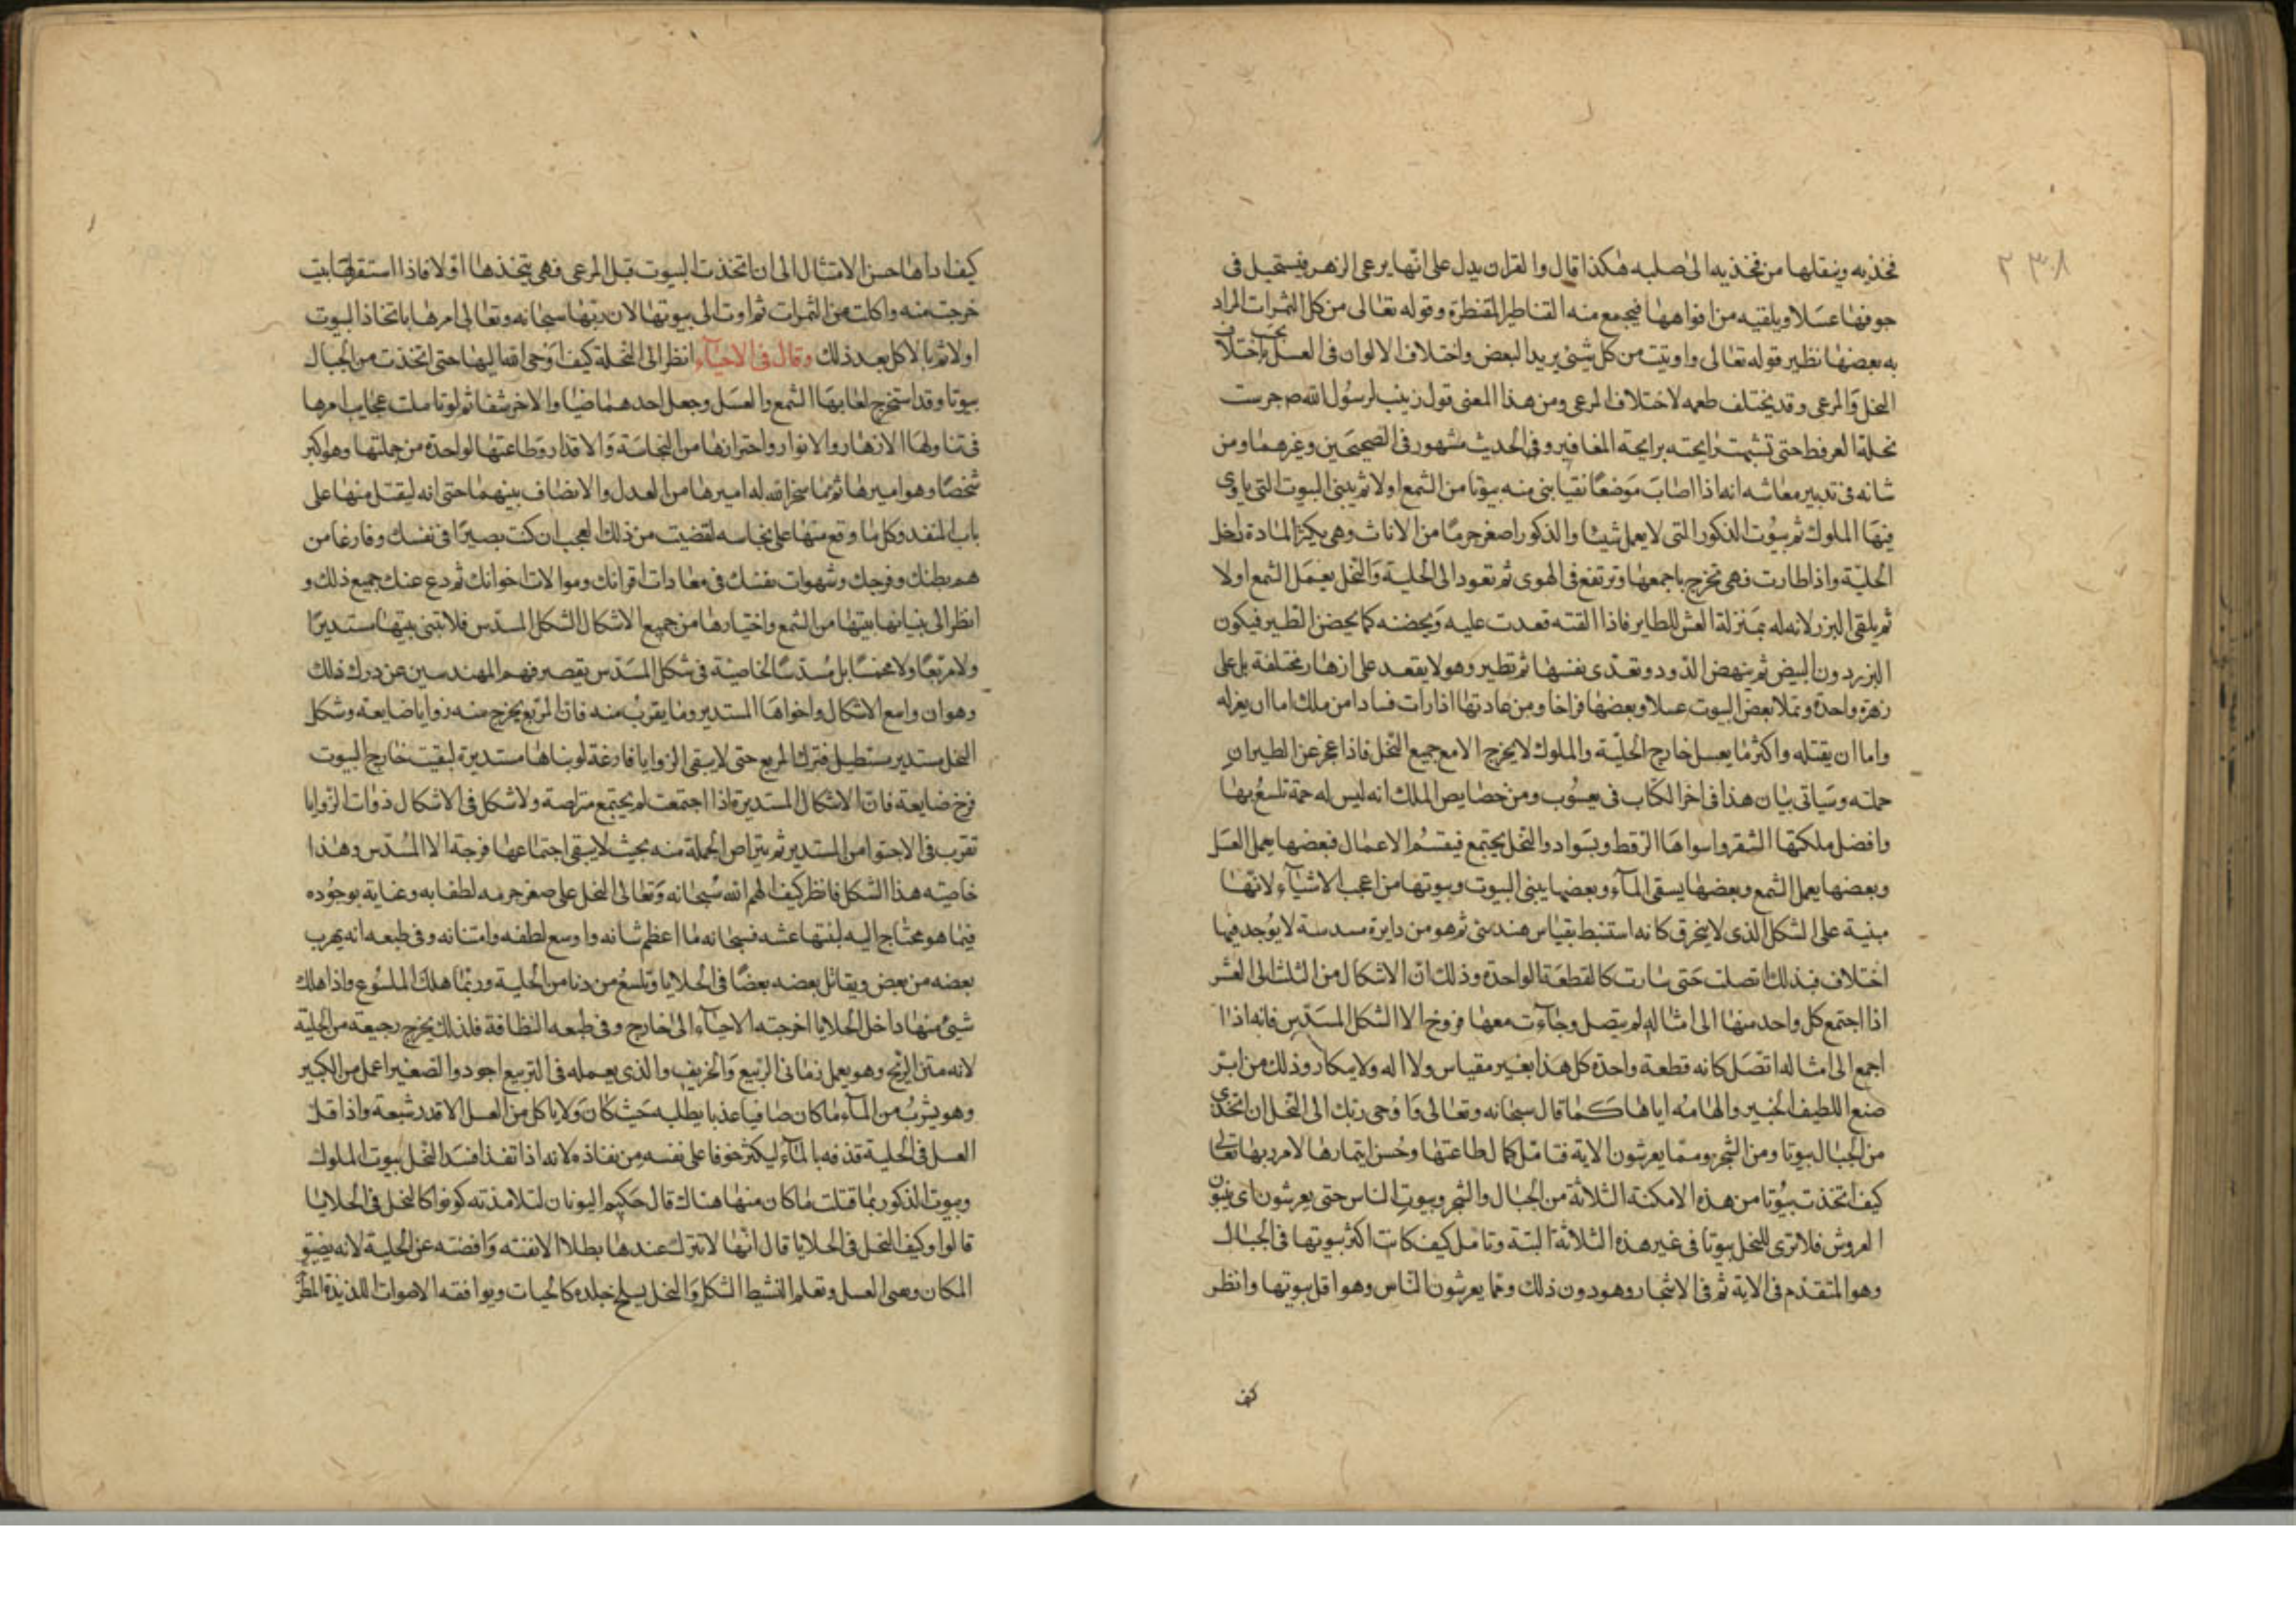 ٢٣٨
فخذيه وينقلها من فخذيه الى صلبه هكذا قال والقران يدل على انها يرعى الزهر فيستحيل فى
جوفها عسلا ويلقيه من افواهها فيجمع منه القناطير المقنطرة وقوله تعالى من كل الثمرات المراد
به بعضها نظير قوله تعالى واوتيت من كل شئ يريد البعض واختلاف الالوان فى العسل بحسب اختلاف
النحل والمرعى وقد يختلف طعمه لاختلاف المرعى ومن هذا المعنى قول زينب لرسول الله ص جرست
نحلة العرفط حتى تشبهت رايحته برايحة المغافير وفى الحديث مشهور فى الصحيحين وغيرهما ومن
شانه فى تدبير معاشه انه اذا اصاب موضعا نقيا بنى منه بيوتا من الشمع اولا ثم يبنى البيوت التى ياوى
فيها الملوك ثم بيوت الذكور التى لا يعمل شيئا والذكور اصغر جرما من الاناث وهى يكثر المادة داخل
الخلية واذا طارت فهى تخرج باجمعها وترتفع فى الهوى ثم تعود الى الخلية والنحل يعمل الشمع اولا
ثم يلقى البزر لانه له بمنزلة العش للطاير فاذا القته قعدت عليه ويحضنه كما يحضن الطير فيكون
البزر دون البيض ثم ينهض الدود وتغدى بنفسها ثم تطير وهو لا يقعد على ازهار مختلفة بل على
زهرة واحدة وتملا بعض البيوت عسلا وبعضها فراخا ومن عادتها اذا رات فسادا من ملك اما ان يعزله
واما ان يقتله واكثر ما يعسل خارج الخلية والملوك لا يخرج الا مع جميع النحل فاذا عجز عن الطيران
حملته وسياتى بيان هذا فى اخر الكتاب فى يعسوب ومن خصايص الملك انه ليس له حمة تلسع بها
وافضل ملكتها الشقر واسواها الرقط وبسواد والنحل يجتمع فيقسم الاعمال فبعضها يعمل العسل
وبعضها يعمل الشمع وبعضها يسقى الماء وبعضها يبنى البيوت وبيوتها من اعجب الاشياء لانها
مبنية على الشكل الذى لا ينخرق كانه استنبط بقياس هندسى ثم هو من دايرة مسدسة لا يوجد فيها
اختلاف فبذلك اتصلت حتى صارت كالقطعة الواحدة وذلك ان الاشكال من الثلث الى العشر
اذا اجتمع كل واحد منها الى امثاله لم يتصل وجاءت معها فروخ الا الشكل المسدس فانه اذا
اجمع الى امثاله اتصل كانه قطعة واحدة كل هذا بغير مقياس ولا اله ولا بيكار وذلك من اثر
صنع اللطيف الخبير والهامه اياها كما قال سبحانه وتعالى واوحى ربك الى النحل ان اتخذى
من الجبال بيوتا ومن الشجر ومما يعرشون الاية فتامل كمال طاعتها وحسن ايتمارها لامر ربها تعالى
كيف اتخذت بيوتا من هذه الامكنة الثلاثة من الجبال والشجر وبيوت الناس حتى يعرشون اى يبنون
العروش فلا ترى للنحل بيوتا فى غير هذه الثلاثة البتة وتامل كيف كانت اكثر بيوتها فى الجبال
وهو المتقدم فى الاية ثم فى الاشجار وهو دون ذلك ومما يعرشون الناس وهو اقل بيوتها وانظر
كيف
كيف اداها حسن الامتثال الى ان اتخذت البيوت قبل المرعى فهى يتخذها اولا فاذا استقر لها بيت
خرجت منه واكلت من الثمرات ثم اوت الى بيوتها لان ربها سبحانه وتعالى امرها باتخاذ البيوت
اولا ثم بالاكل بعد ذلك وقال فى الاحياء انظر الى النحلة كيف اوحى الله اليها حتى اتخذت من الجبال
بيوتا وقد استخرج لعابها الشمع والعسل وجعل احدهما ضيا والاخر شفا ثم لو تاملت عجايب امرها
فى تناولها الازهار والانوار واحترازها من النجاسة والاقذار وطاعتها لواحدة من جملتها وهو اكبر
شخصا وهو اميرها ثم ما سخر الله له اميرها من العدل والانصاف بينهما حتى انه ليقتل منها على
باب المنفد وكل ما وقع منها على نجاسه لقضيت من ذلك العجب ان كنت بصيرا فى نفسك وفارغا من
هم بطنك وفرجك وشهوات نفسك فى معادات اقرانك وموالات اخوانك ثم دع عنك جميع ذلك و
انظر الى بنيانها بيتها من الشمع واختيارها من جميع الاشكال الشكل المسدس فلا تبنى بيتها مستديرا
ولا مربعا ولا مخمسا بل مسدسا لخاصية فى شكل المسدس يقصر فهم المهندسين عن درك ذلك
وهو ان واسع الاشكال واحواها المستدير وما يقرب منه فان المربع يخرج منه زوايا ضايعة وشكل
النحل مستدير مستطيل فترك المربع حتى لا يبقى الزوايا فارغة لو بناها مستديرة لبقيت خارج البيوت
فرخ ضايعة فان الاشكال المستديرة اذا اجتمعت لم يجتمع متراصة ولا شكل فى الاشكال ذوات الزوايا
تقرب فى الاحتوا من المستدير ثم يتراص الجملة منه بحيث لا يبقى اجتماعها فرجة الا المسدس وهذا
خاصية هذا الشكل فانظر كيف الهم الله سبحانه وتعالى النحل على صغر جرمه لطفا به وعناية بوجوده
فيما هو محتاج اليه ليتها عشه فسبحانه ما اعظم شانه واوسع لطفه وامتنانه وفى طبعه انه يهرب
بعضه من بعض ويقاتل بعضه بعضا فى الخلايا وتلسع من دنا من الخلية وربما هلك الملسوع واذا هلك
شئ منها داخل الخلايا اخرجته الاحياء الى الخارج وفى طبعه النظافة فلذلك يخرج رجيعه من الخلية
لانه منتن الريح وهو يعمل زمانى الربيع والخريف والذى يعمله فى الربيع اجود والصغير اعمل من الكبير
وهو يشرب من الماء ما كان صافيا عذبا يطلبه حيث كان ولا ياكل من العسل الا قدر شبعه واذا قل
العسل فى الخلية قذفه بالماء ليكثر خوفا على نفسه من نفاذه لانه اذا نفد افسد النحل بيوت الملوك
وبيوت الذكور بما قتلت ما كان منها هناك قال حكيم اليونان لتلامذته كونوا كالنحل فى الخلايا
قالوا وكيف النحل فى الخلايا قال انها لا تترك عندها بطلا الا نفته واقصته عن الخلية لانه يضيق
المكان ويفنى العسل وتعلم النشيط الشكل والنحل يسلخ جلده كالحيات ويوافقه الاصوات اللذيذة المطر